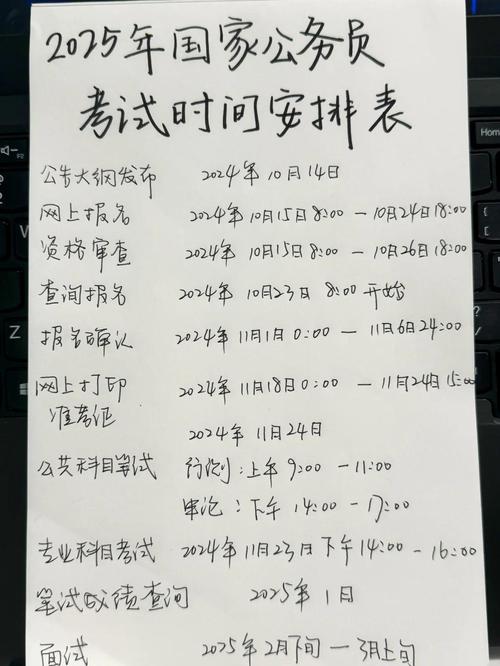 2025年国家公务员
考试时间安排表
公告大纲发布 2024年10月14日
网上报名 2024年10月15日8:00 — 10月24日18:00
资格审查 2024年10月15日8:00 — 10月26日18:00
查询报名 2024年10月23日 8:00 开始
报名确认 2024年11月1日0:00 — 11月6日24:00
网上打印 2024年11月18日0:00 — 11月24日15:00
准考证
2024年11月24日
公共科目笔试 行测:上午9:00 — 11:00
申论:下午14:00 — 17:00
专业科目考试 2024年11月23日下午14:00 - 16:00
笔试成绩查询 2025年1月
面试 2025年2月下旬 — 3月上旬